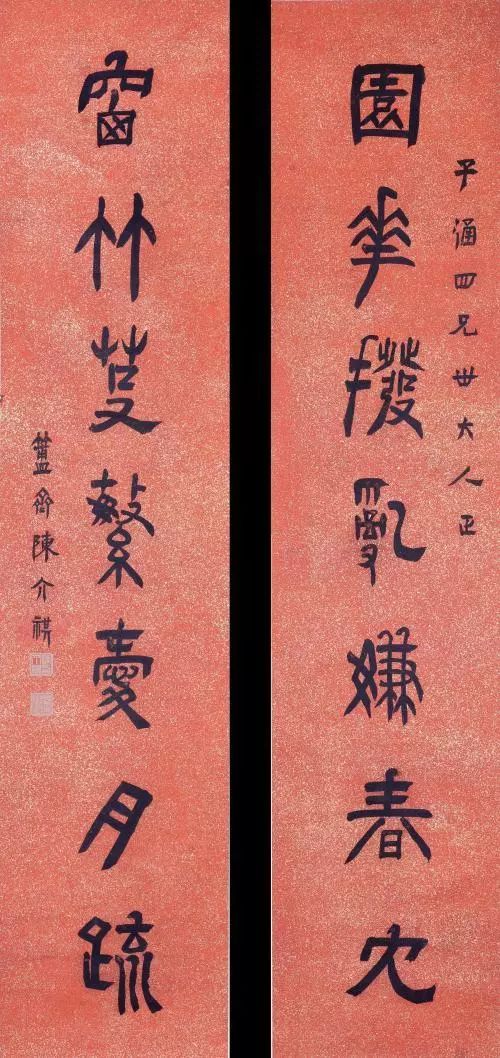 子涵四兄世大人正
園華撥亂嫌春宂
窗竹芟繁愛月疏
簠齋陳介祺